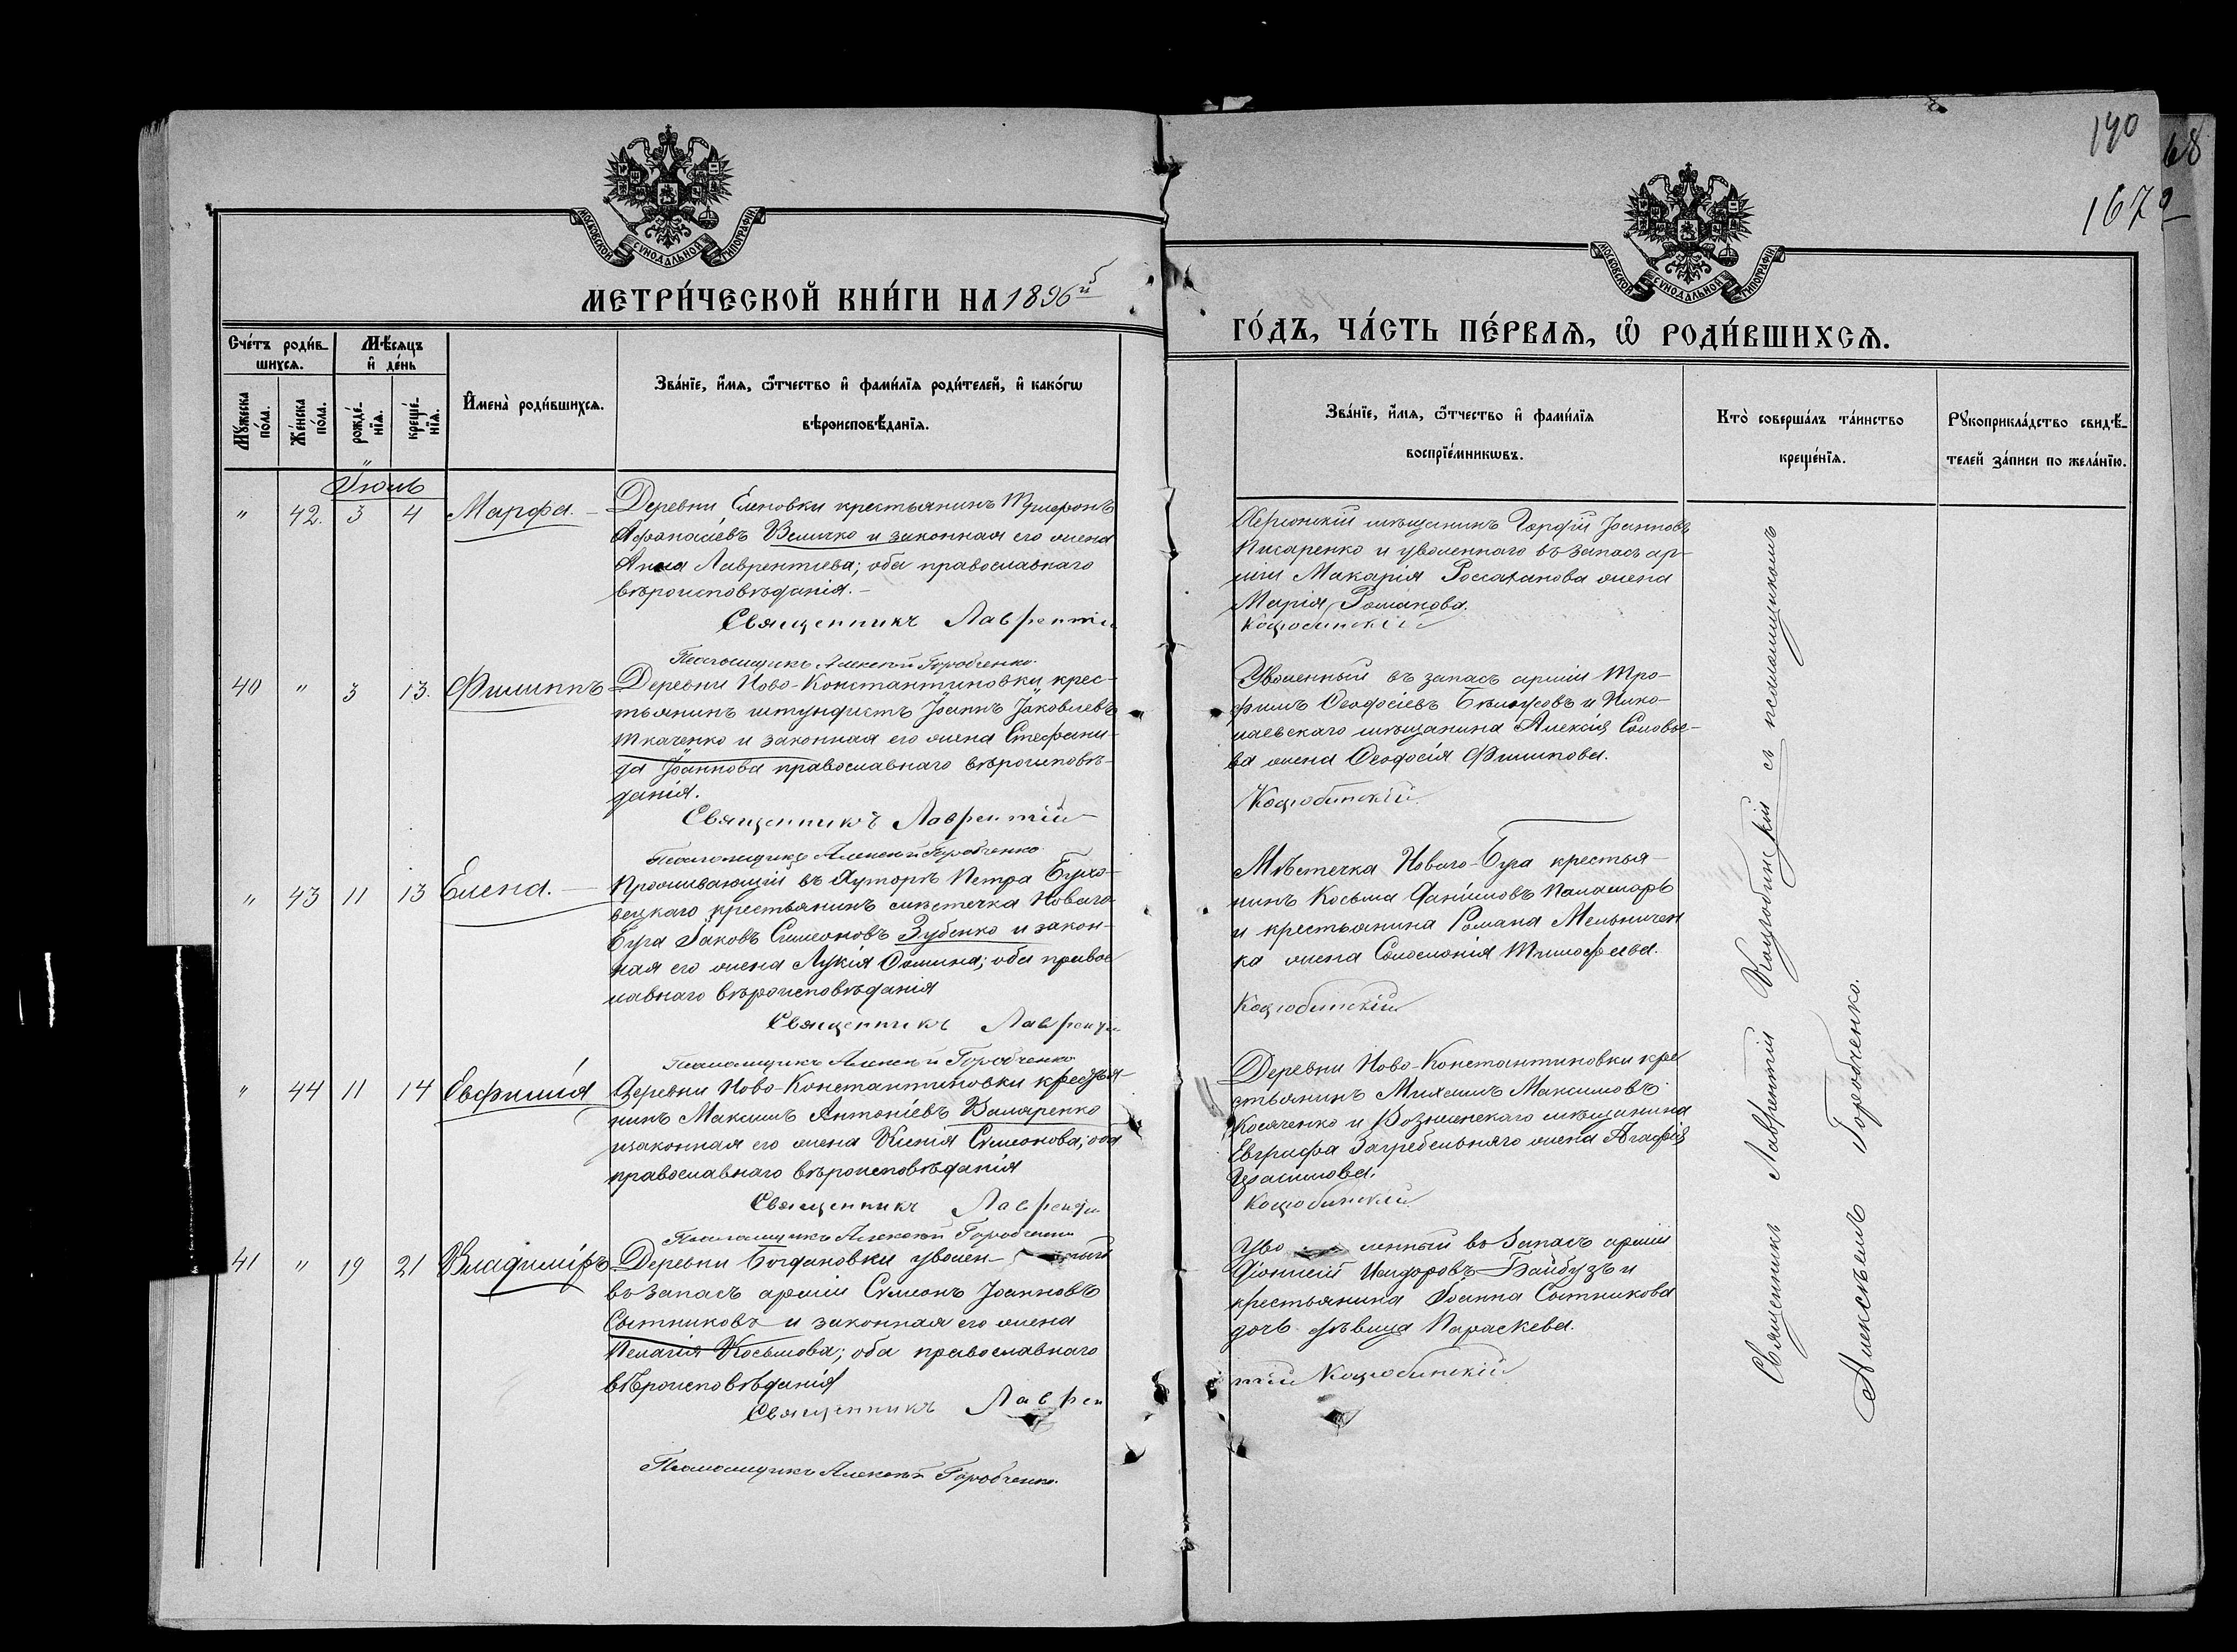 190
68
167
МОСКОВСКОЙ СѴНОДАЛЬНОЙ ТИПОГРАФІИ
МОСКОВСКОЙ СѴНОДАЛЬНОЙ ТИПОГРАФІИ
МЕТРИ́ЧЕСКОЙ КНИ́ГИ НА 1896й
ГО́ДЪ, ЧА́СТЬ ПЕ́РВАѦ, Ѿ РОДИ́ВШИХСѦ.
Сче́тъ роди́в-
шихсѧ.
Мѣ́сѧцъ
и҆ де́нь
Мꙋ́жеска по́ла.
Же́нска по́ла.
рожде́-
нїѧ.
креще́-
нїѧ.
И҆мена̀ роди́вшихсѧ.
Зва́нїе, и҆́мѧ, ѻ҆́тчество и҆ фами́лїѧ роди́телей, и҆ како́гѡ
вѣроисповѣ́данїѧ.
Зва́нїе, и҆́мѧ, ѻ҆́тчество и҆ фами́лїѧ
воспрїе́мникѡвъ.
Кто̀ соверша́лъ та́инство
креще́нїѧ.
Рꙋкоприкла́дство свидѣ́-
телей за́писи по жела́нїю.
Іюль
" 42. 3 4 Марфа.
Деревни Еленовки крестьянинъ
Афанасіевъ Величко и законная его жена
Анна Лаврентіева; оба православнаго
вѣроисповѣданія.
Священникъ Лаврентій
Псаломщикъ Алексѣй Горобченко.
Херсонскій мѣщанинъ Іоанновъ
Писаренко и уволеннаго въ запасъ ар-
міи Макарія жена
Марія Романова.
Коцюбинскій
40 " 3 13. Филиппъ
Деревни Ново-Константиновки крес-
тьянинъ штундистъ Іоаннъ Іаковлевъ
Ткаченко и законная его жена Стефани-
да Іоаннова православнаго вѣроисповѣ-
данія.
Священникъ Лаврентій
Псаломщикъ Алексѣй Горобченко
Уволенный въ запасъ арміи Тро-
фимъ Ѳеодосіевъ и Нико-
лаевскаго мѣщанина Алексія Соловье-
ва жена Ѳеодосія Филипова.
Коцюбинскій
" 43 11 13 Елена.
Проживающій въ хуторѣ Петра
крестьянинъ мѣстечка Новаго
Буга Іаковъ Симеоновъ Зубенко и закон-
ная его жена Лукія Ѳомина; оба правос
лавнаго вѣроисповѣданія
Священникъ Лаврентій
Псаломщикъ Алексѣй Горобченко
Мѣстечка Новаго-Буга крестья-
нинъ Косьма Даніиловъ Паламарь
и крестьянина Романа Мельничен
ка жена Соломонія Тимофеева.
Коцюбинскій
" 44 11 14 Евфимія
Деревни Ново-Константиновки крестья-
нинъ Максимъ Антоніевъ
и законная его жена Ксенія Симеонова; оба
православнаго вѣроисповѣданія
Священникъ Лаврентій
Псаломщикъ Алексѣй Горобченко
Деревни Ново-Константиновки кре
стьянинъ Михаилъ Максимовъ
Косяченко и Вознесенскаго мѣщанина
Евграфа Загребельняго жена Агафія
Коцюбинскій
41 " 19 21 Владиміръ
Деревни Богдановки уволен-
въ запасъ арміи Симеонъ Іоанновъ
Сотниковъ и законная его жена
Пелагія Косьмова; оба православнаго
вѣроисповѣданія
Священникъ Лаврен
Псаломщикъ Алексѣй Горобченко.
Уво ленный въ запасъ арміи
Діонисій Исидоровъ Байбузъ и
крестьянина Іоанна Сотникова
дочь дѣвица Параскева.
тій Коцюбинскій
Священникъ Лаврентій Коцюбинскій съ псаломщикомъ
Алексѣемъ Горобченко.